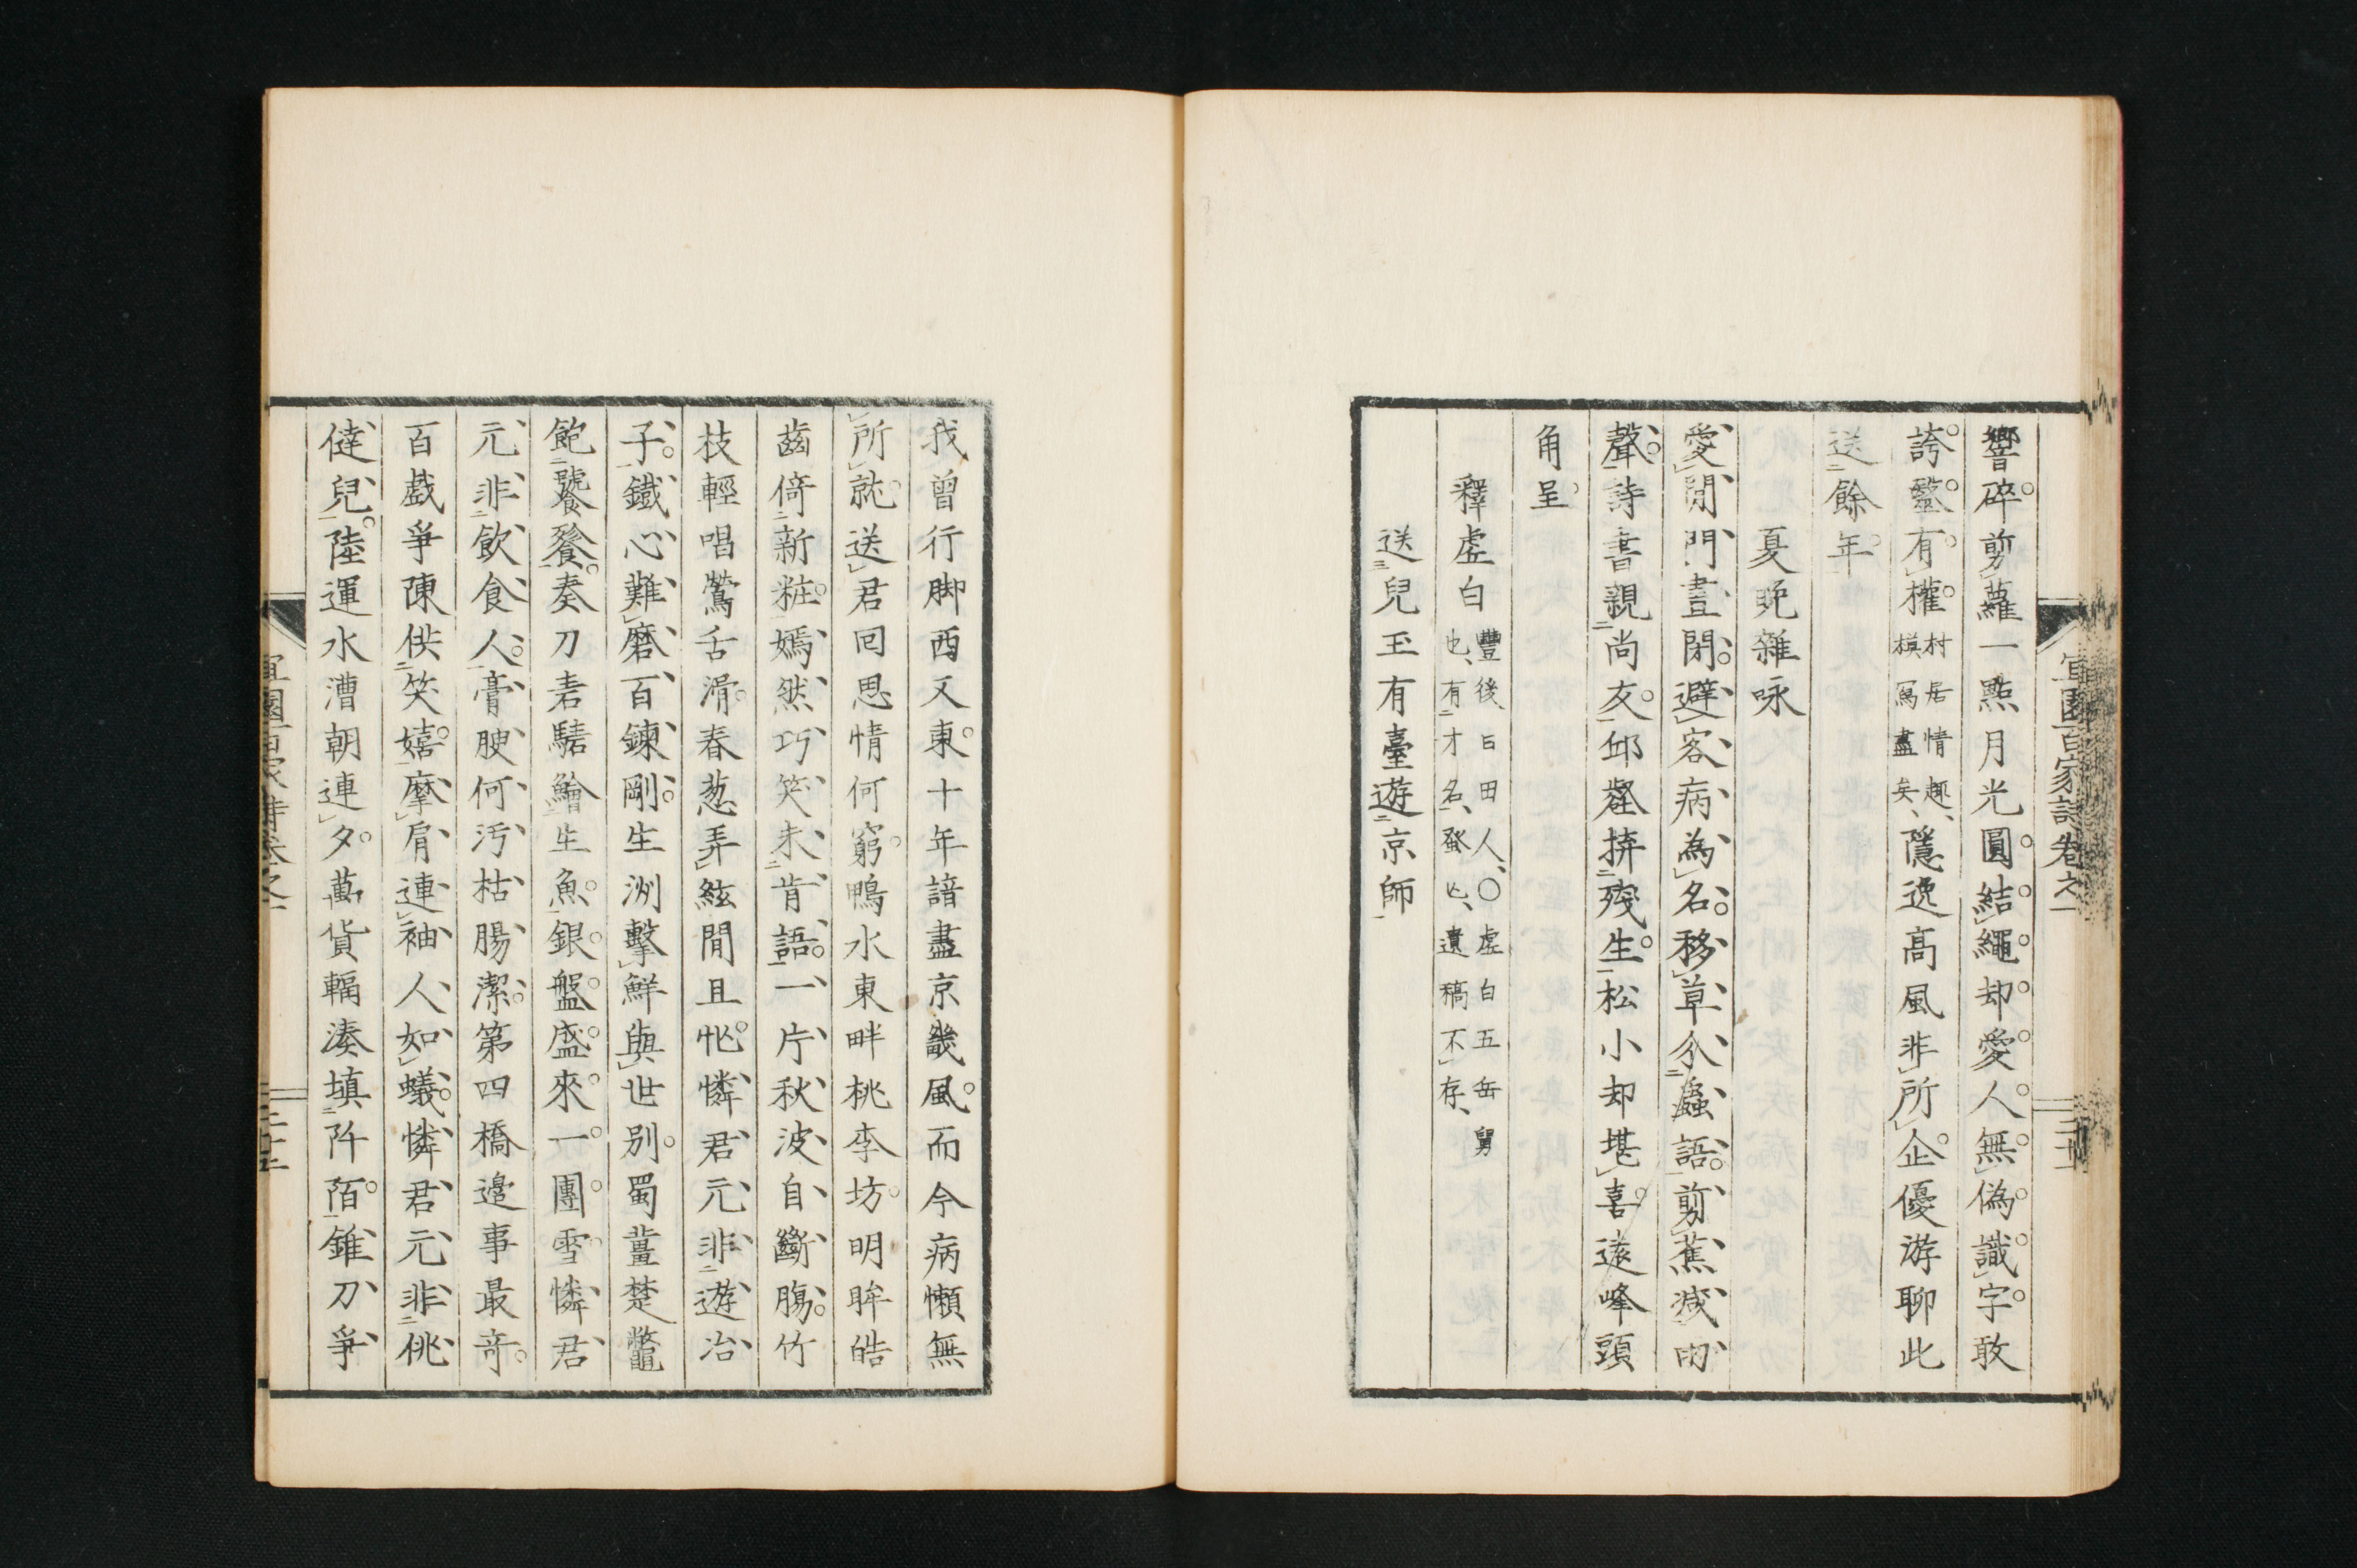 宜園百家詩卷之一
響碎剪蘿一點月光圓結繩却愛人無偽識字敢
誇盤有權
村居情趣
模寫盡矣
隱逸高風非所企優游聊此
送餘年
夏晚雜咏
愛閒門晝閉避客病為名移草分蟲語剪蕉減雨
聲詩書親尚友邱壑拚殘生松小却堪喜遠峰頭
角呈
釋虛白
豐後日田人○虛白五岳舅
也有才名發亡遺稿不存
送兒玉有臺遊京師
我曾行脚西又東十年諳盡京畿風而今病懶無
所就送君回思情何窮鴨水東畔桃李坊明眸皓
齒倚新粧嫣然巧笑未肯語一片秋波自斷腸竹
枝輕唱鶯舌滑春葱弄絃閒且怭憐君元非遊冶
子鐵心難磨百鍊剛生洲擊鮮與世別蜀薑楚鼈
飽饕餮奏刀砉騞鱠生魚銀盤盛來一團雪憐君
元非飲食人膏腴何汚枯腸潔第四橋邊事最奇
百戲爭陳供笑嬉摩肩連袖人如蟻憐君元非佻
㒓兒陸運水漕朝連夕萬貨輻湊填阡陌錐刀爭
宜園百家詩卷之一